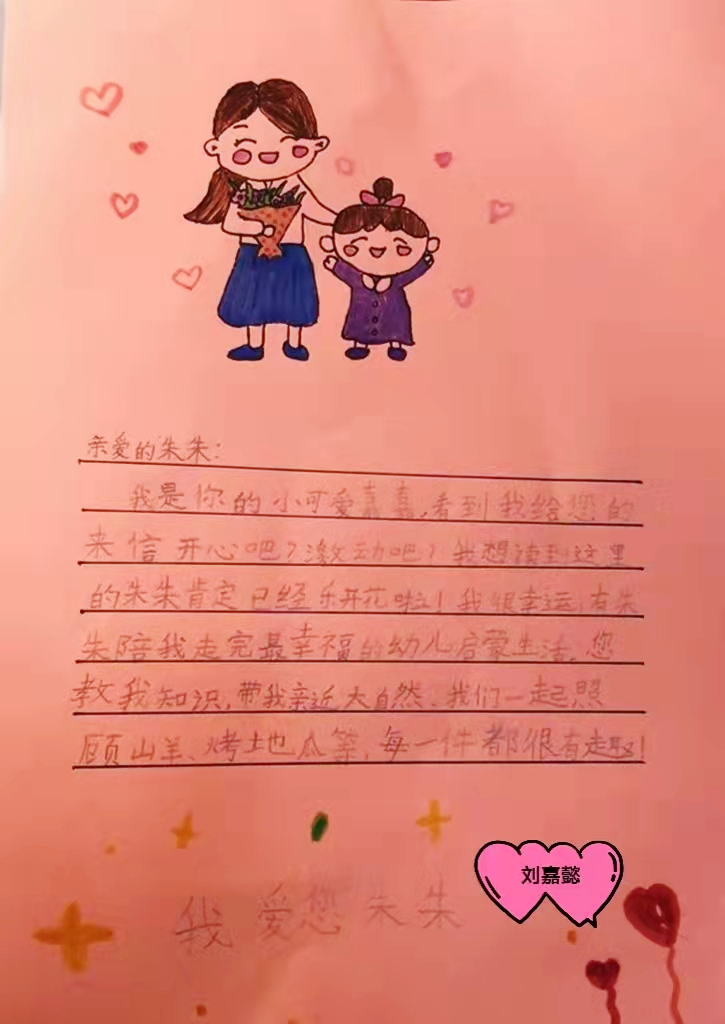 亲爱的朱朱：
我是你的小可爱嘉嘉，看到我给您的
来信开心吧？激动吧？我想读到这里
的朱朱肯定已经乐开花啦！我很幸运，有朱
朱陪我走完最幸福的幼儿启蒙生活。您
教我知识，带我亲近大自然、我们一起照
顾山羊、烤地瓜等，每一件都很有趣！
刘嘉懿
我爱您朱朱